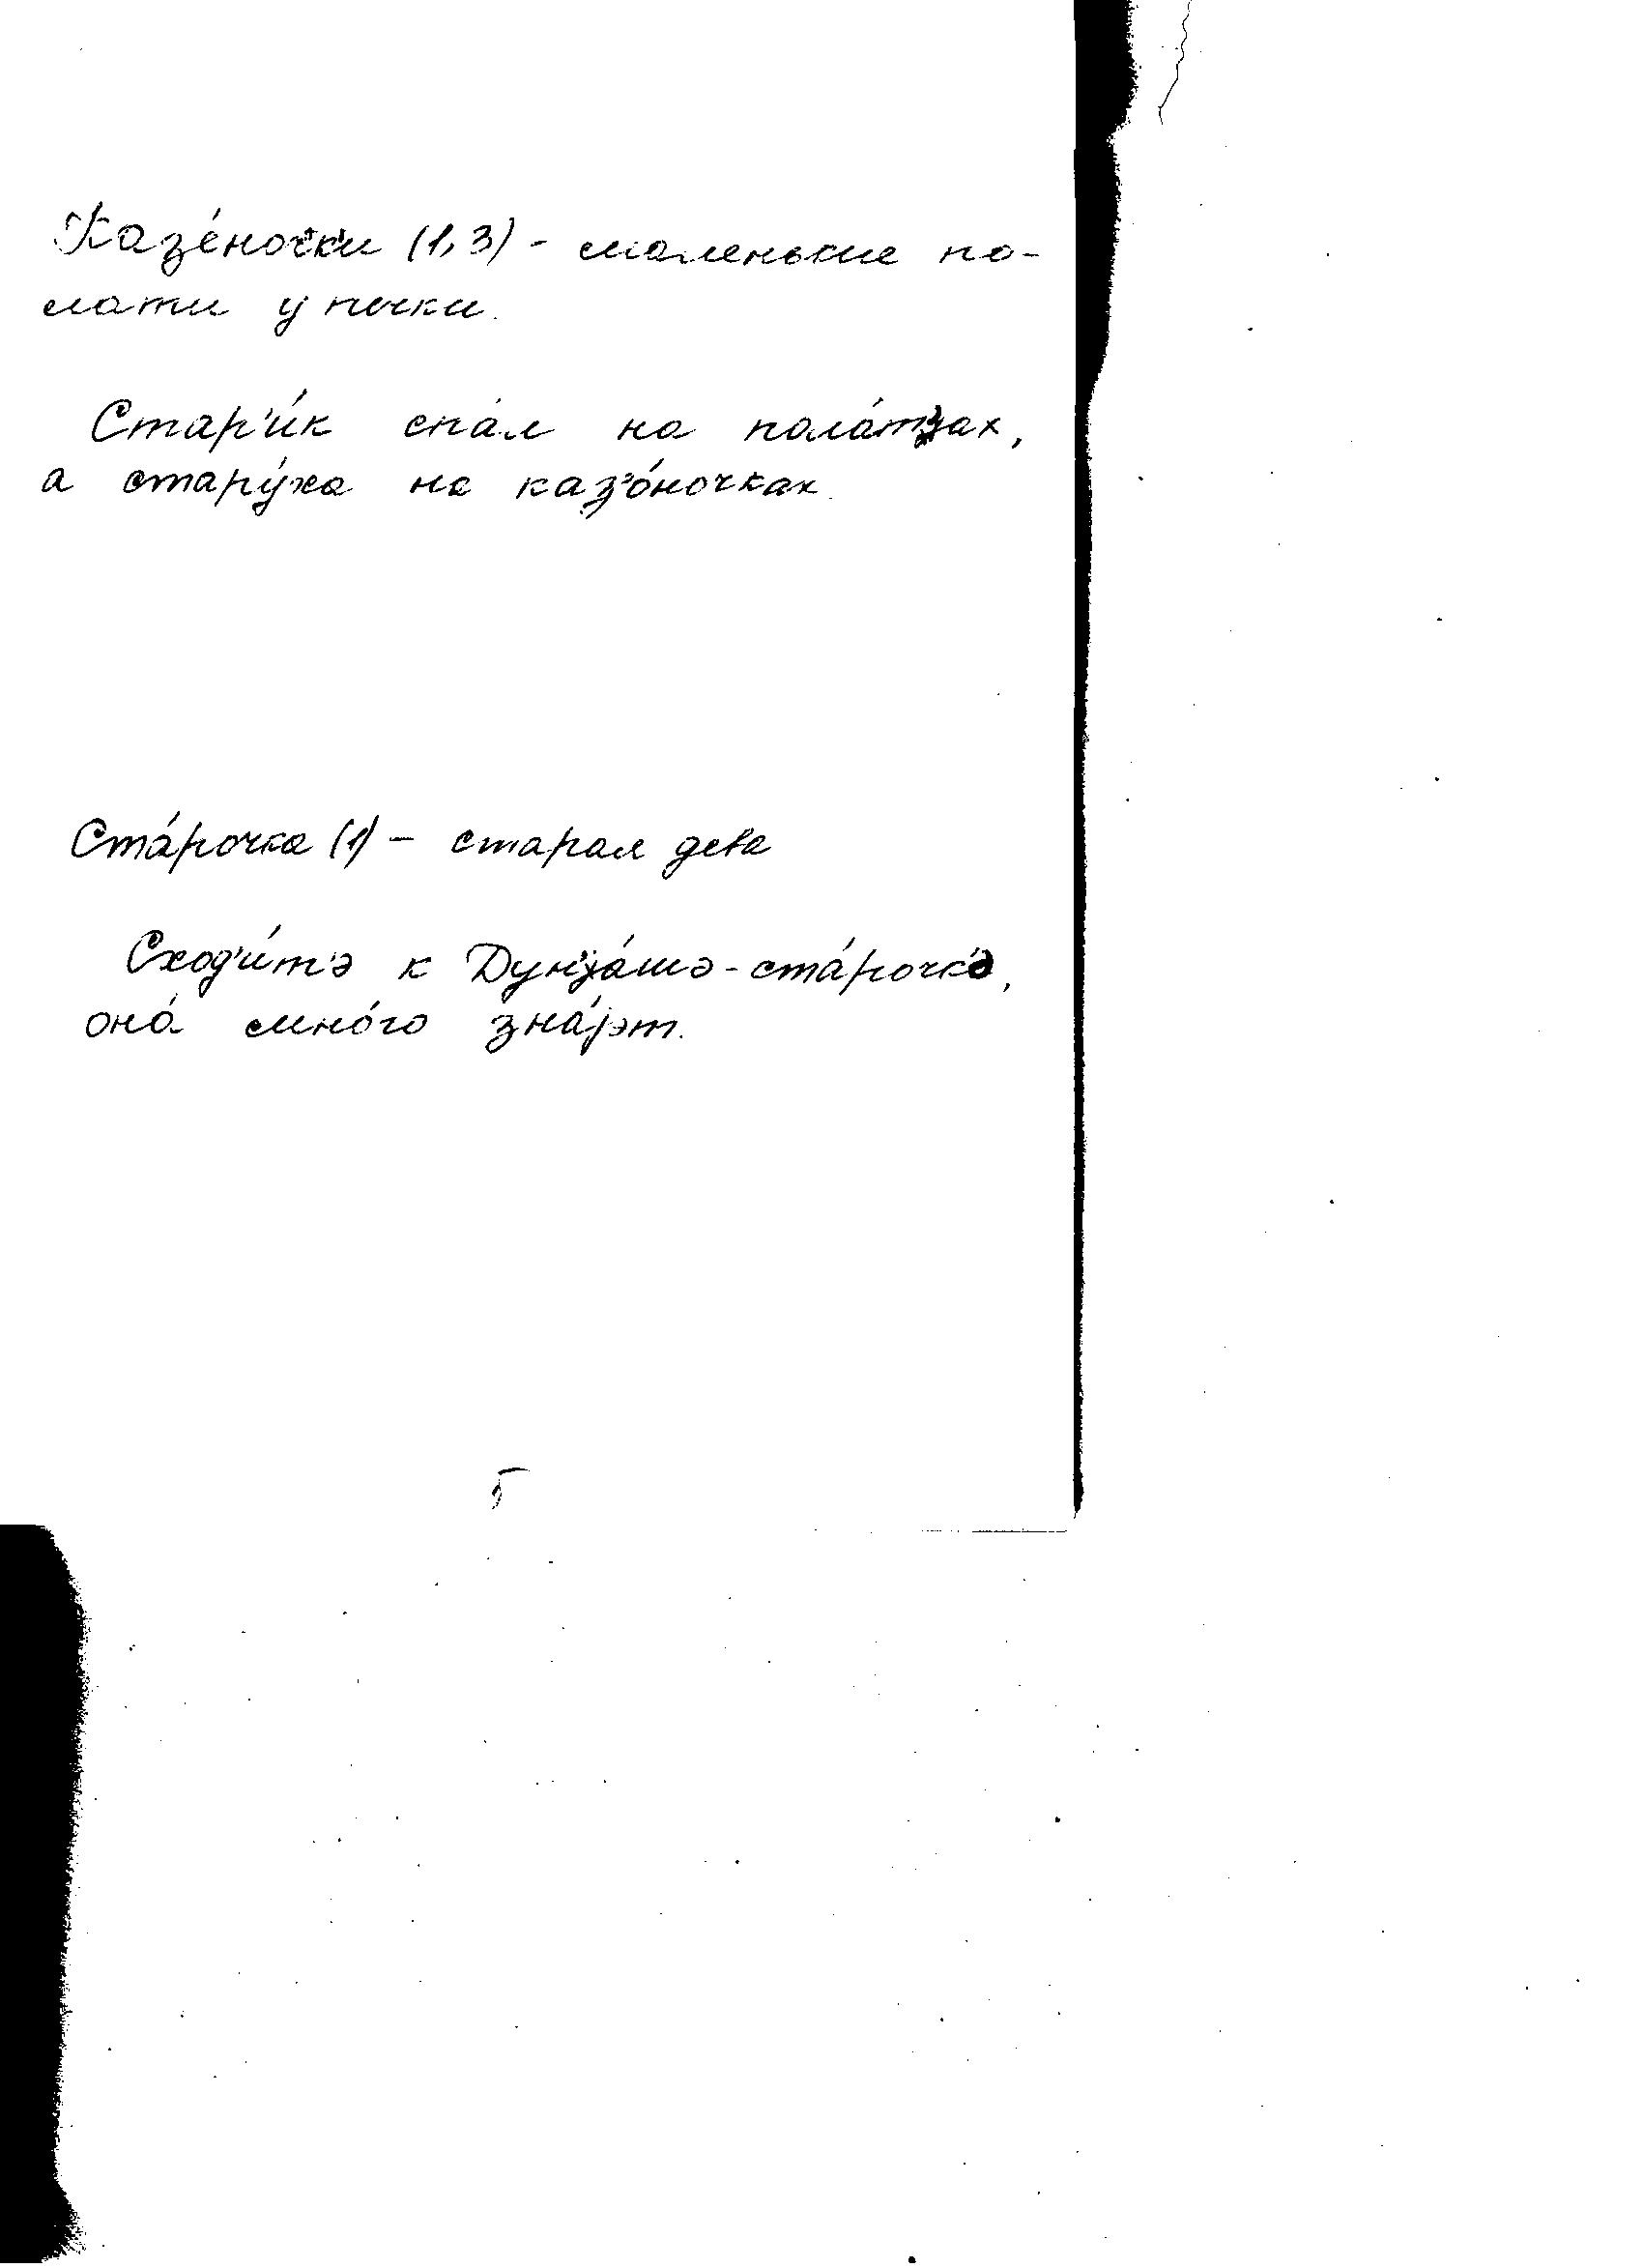 Казе́ночки (1, 3) - маленькие по-
лати у печки.
Стар'и́к спа́л на пола́т'ах,
а стару́ха на каз'о́ночках.
Ста́рочка (1) – старая дева
Сход'и́т'э к Дун'а́шэ-ста́рочк'э,
она́ мно́го зна́jэт.